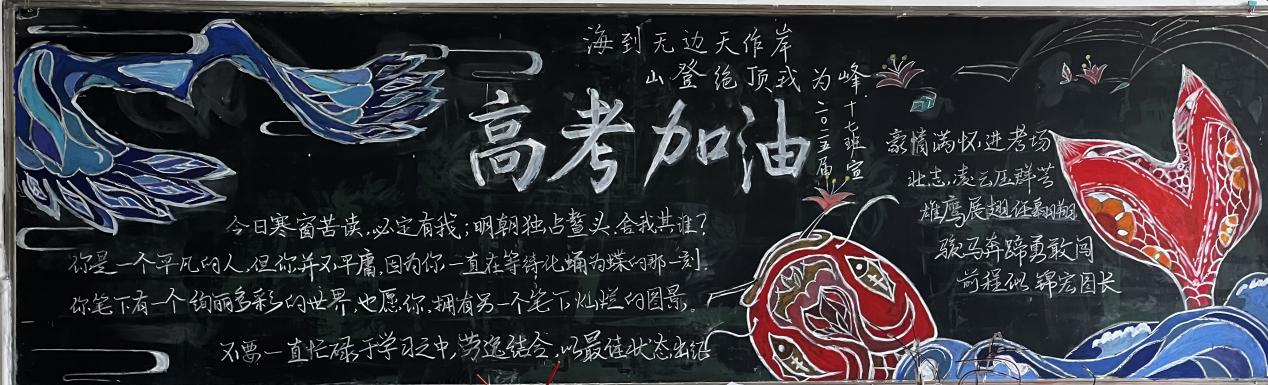 海到无边天作岸
山登绝顶我为峰
高考加油
二〇二五届
十七班 宣
豪情满怀进考场
壮志凌云压群芳
雄鹰展翅任翱翔
骏马奔蹄勇敢闯
前程似锦宏图长
今日寒窗苦读,必定有我;明朝独占鳌头,舍我其谁?
你是一个平凡的人,但你并不平庸,因为你一直在等待化蛹为蝶的那一刻.
你笔下有一个绚丽多彩的世界,也愿你,拥有另一个笔下灿烂的图景。
不要一直忙碌于学习之中,劳逸结合,以最佳状态出征